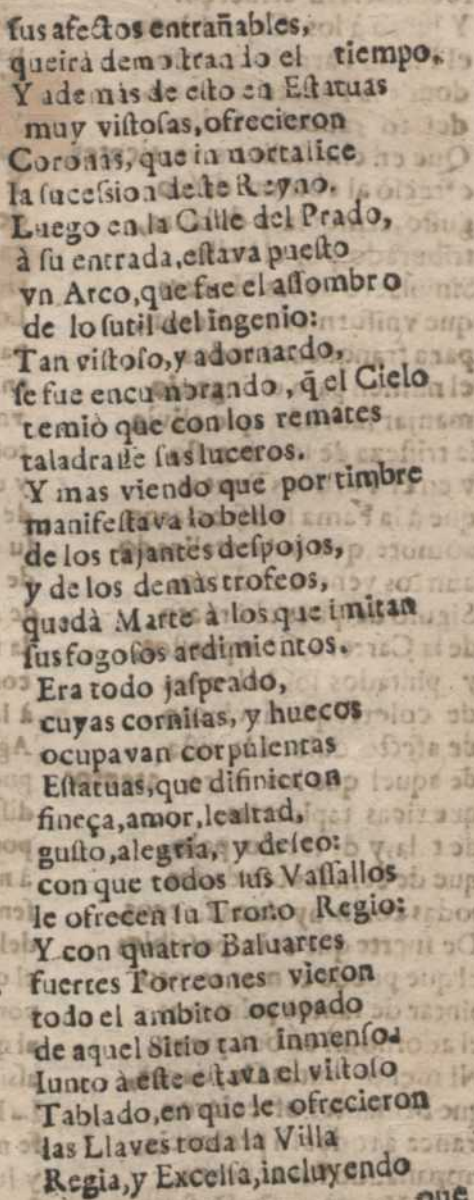 sus afectos entrañables,
queirà demostrando el tiempo.
Y ademàs de esto en Estatuas
muy vistosas, ofrecieron
Coronas, que inmortalice
la sucession deste Reyno.
Luego en la Calle del Prado,
à su entrada, estava puesto
vn Arco, que fue el assombro
de lo sutil del ingenio:
Tan vistoso, y adornardo,
se fue encumbrando, q̃ el Cielo
temiò que con los remates
taladrasse sus luceros.
Y mas viendo que por timbre
manifestava lo bello
de los tajantes despojos,
y de los demàs trofeos,
quedà Marte à los que imitan
sus fogosos ardimientos.
Era todo jaspeado,
cuyas cornisas, y huecos
ocupavan corpulentas
Estatuas, que difinieron
fineça, amor, lealtad,
gusto, alegria, y deseo:
con que todos sus Vassallos
le ofrecen su Trono Regio:
Y con quatro Baluartes
fuertes Torreones vieron
todo el ambito ocupado
de aquel Sitio tan inmenso.
Iunto à este estava el vistoso
Tablado, en que le ofrecieron
las Llaves toda la Villa
Regia, y Excelsa, incluyendo